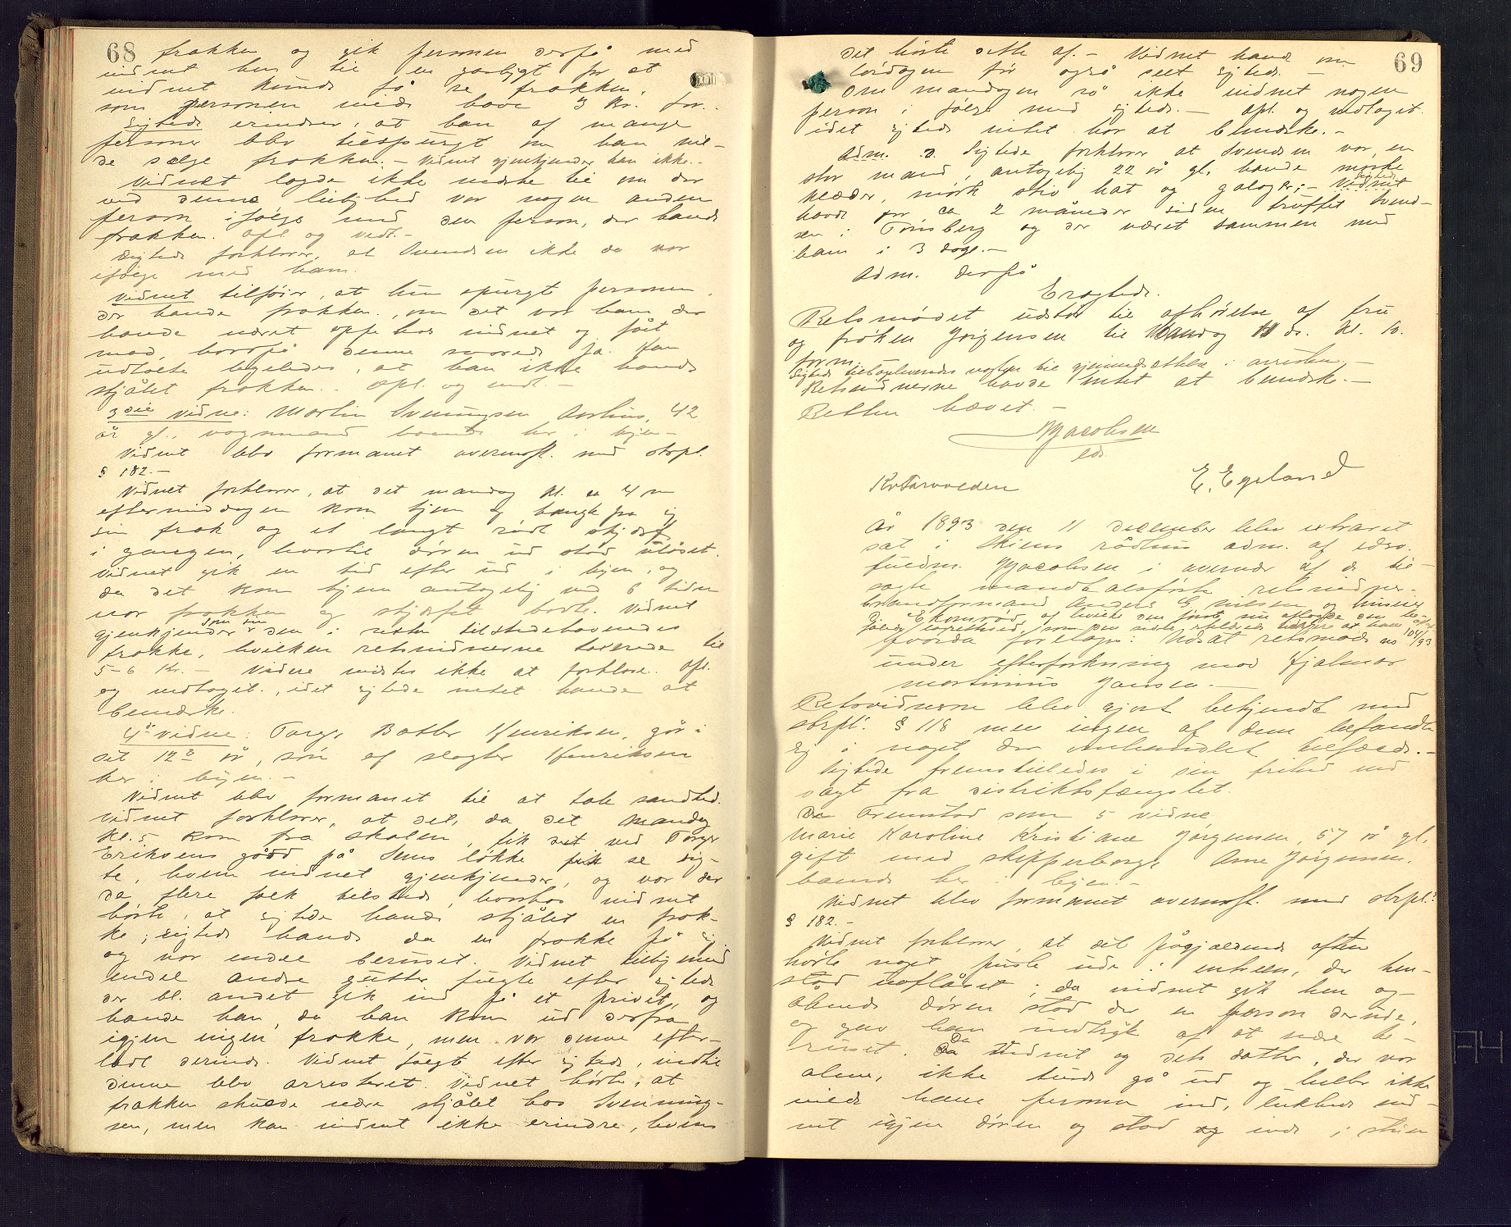 68
frakken og gik personen derpå med
vidnet hen til en gaslygt for at
vidnet kunde få se frakken,
som personen vilde have 3 kr. for.
Sigtede erindrer, at han af mange
personer blev tilspurgt om han vil-
de sælge frakken. - Vidnet gjenkjender han ikke. -
Vidnet lagde ikke mærke til om der
ved denne leilighed var nogen anden
person i følge med den person, der havde
frakken. Opl. og vedt. -
Sigtede forklarer, at Svendsen ikke da var
ifølge med ham.
Vidnet tilføier, at hun spurgt personen,
der havde frakken, om det var ham, der
havde været oppe hos vidnet og fået
mad, hvorpå denne svarede ja. Han
udtalte ligeledes, at han ikke havde
stjålet frakken. Opl. og vedt. -
3die vidne: Martin Sveningsen Aarhus, 42
år gl., vognmand boende her i byen -
Vidnet blev formanet overensst. med strpl.
§ 182. -
Vidnet forklarer, at det mandag kl. ca 4 m
eftermiddagen kom hjem og hængte fra sig
sin frak og et langt rødt skjærf
i gangen, hvortil døren ud stod ulåset.
Vidnet gik en tid efter ud i byen, og
da det kom hjem antagelig ved 6 tiden
var frakken og skjærfet borte. Vidnet
gjenkjender som sin den i retten tilstedeværende
frakke, hvilken retsvidnerne taxerede til
5-6 kr. - Vidnet vidste ikke at forklare. Opl.
og vedtaget, idet sigtede intet havde at
bemærke.
4de vidne Torge Batler Henriksen, går i
det 12te år, søn af slagter Henriksen
her i byen. -
Vidnet blev formanet til at tale sandhed.
Vidnet forklarer, at det, da det mandag
kl. 5 kom fra skolen, fik det ved Torger
Eriksens gård på Snus løkke se sig-
te, hvem vidnet gjenkjender, og var der
da flere folk tilstede, hvorhos vidnet
hørte, at sigtede havde stjålet en frak-
ke; sigtede havde da en frakke på sig
og var endel beruset. Vidnet tilligemed
endel andre gutter fulgte efter sigtede
der bl. andet gik ind på et privet, og
havde han, da han kom ud derfra
igjen ingen frakke, men var denne efter-
ladt derinde. Vidnet fulgte efter sigtede, indtil
denne blev arresteret. Vidnet hørte, at
frakken skulde være stjålet hos Svening-
sen, men kan vidnet ikke erindre, hvem
69
det hørte dette af. - Vidnet havde om
lørdagen før også seet sigtede. -
Om mandagen så ikke vidnet nogen
person i følge med sigtede. - Opl. og vedtaget
idet sigtede intet har at bemærke. -
Adm. Sigtede forklarer at Svendsen var en
stor mand, antagelig 22 år gl., havde mørke
klæder, mørk stiv hat og galoger; - Sigtede
havde for ca 2 måneder siden truffet Svend-
sen i Tønsberg og der været sammen med
ham i 3 dage. -
Adm. derpå
Eragtede.
Retsmødet udstår til afhørelse af fru
og frøken Jørgensen til mandag 11 ds. kl. 10
form.
Retsvidnerne havde intet at bemærke. -
Retten hævet. -
Jacobsen
Kr. Farvolden
E. Egeland
År 1893 den 11 december blev extraret
sat i Skiens rådhus adm. af edsv.
fuldm. Jacobsen i overvær af de til-
sagte mandtalsførte retsvidner
hvorda foretages: Udsat retsmøde no 108/93
under efterforskning mod Hjalmar
Martinius Jansen. -
Retsvidnerne blev gjort bekjendt med
strpl. § 118 men ingen af dem befandt
sig i noget der omhandlet tilfælde. -
Sigtede fremstilledes i sin frihed med
vagt fra distriktsfængslet.
Da Fremstod som 5 vidne
Marie Karoline Kristiane Jørgensen, 57 år gl.
gift med skipperborger Arne Jørgensen,
boende her i byen. -
Vidnet blev formanet overensst. med strpl.
§ 182. -
Vidnet forklarer, at det pågjældende aften
hørte noget pusle ude i entreen, der hen-
stod uaflåset; da vidnet gik hen og
åbnede døren stod der en person derude,
og gav han indtryk af at være be-
ruset. Da vidnet og dets datter, der var
alene, ikke turde gå ud og heller ikke
vilde have personen ind, lukkede vid-
net igjen døren og stod og inde i stuen